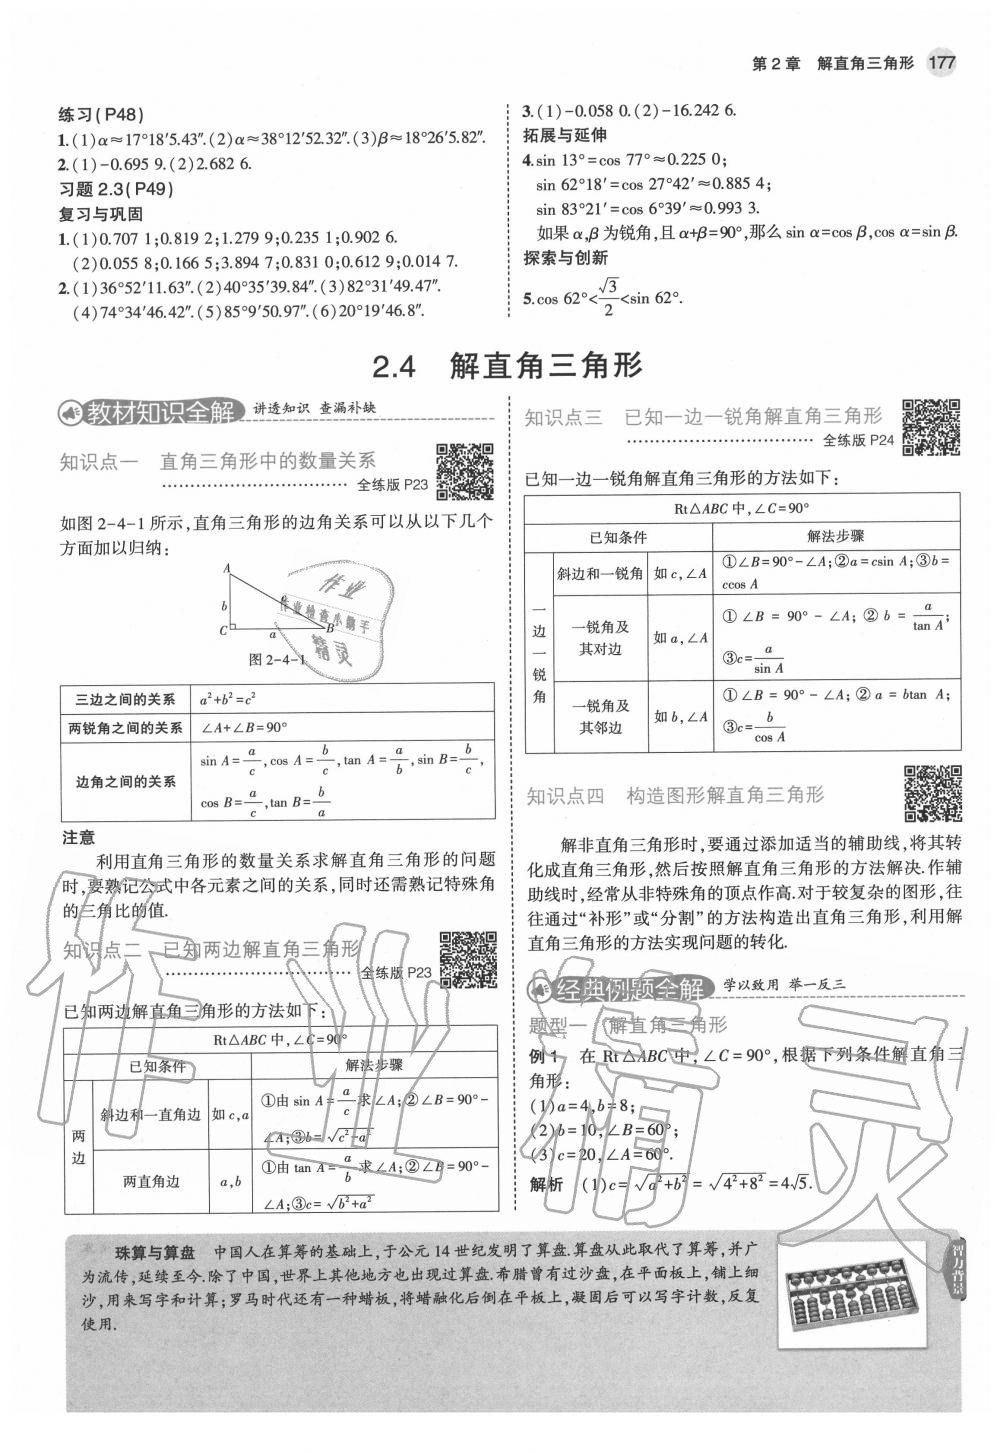 第2章 解直角三角形 177
练习(P48)
1.(1)α≈17°18′5.43″.(2)α≈38°12′52.32″.(3)β≈18°26′5.82″.
2.(1)-0.695 9.(2)2.682 6.
习题 2.3(P49)
复习与巩固
1.(1)0.707 1;0.819 2;1.279 9;0.235 1;0.902 6.
(2)0.055 8;0.166 5;3.894 7;0.831 0;0.612 9;0.014 7.
2.(1)36°52′11.63″.(2)40°35′39.84″.(3)82°31′49.47″.
(4)74°34′46.42″.(5)85°9′50.97″.(6)20°19′46.8″.
3.(1)-0.058 0.(2)-16.242 6.
拓展与延伸
4.sin 13°=cos 77°≈0.225 0;
sin 62°18′=cos 27°42′≈0.885 4;
sin 83°21′=cos 6°39′≈0.993 3.
如果 α,β 为锐角,且 α+β=90°,那么 sin α=cos β,cos α=sin β.
探索与创新
5.cos 62°<√3/2<sin 62°.
2.4 解直角三角形
教材知识全解 讲透知识 查漏补缺
知识点一 直角三角形中的数量关系
全练版 P23
如图 2-4-1 所示,直角三角形的边角关系可以从以下几个
方面加以归纳:
A
b
c
C
a
B
图 2-4-1
三边之间的关系 a²+b²=c²
两锐角之间的关系 ∠A+∠B=90°
边角之间的关系 sin A=a/c,cos A=b/c,tan A=a/b,sin B=b/c,
cos B=a/c,tan B=b/a
注意
利用直角三角形的数量关系求解直角三角形的问题
时,要熟记公式中各元素之间的关系,同时还需熟记特殊角
的三角比的值.
知识点二 已知两边解直角三角形
全练版 P23
已知两边解直角三角形的方法如下:
Rt△ABC 中,∠C=90°
已知条件 解法步骤
两边
斜边和一直角边 如 c,a ①由 sin A=a/c求∠A;②∠B=90°-
∠A;③b=√(c²-a²)
两直角边 a,b ①由 tan A=a/b求∠A;②∠B=90°-
∠A;③c=√(b²+a²)
知识点三 已知一边一锐角解直角三角形
全练版 P24
已知一边一锐角解直角三角形的方法如下:
Rt△ABC 中,∠C=90°
已知条件 解法步骤
一边一锐角
斜边和一锐角 如 c,∠A ①∠B=90°-∠A;②a=csin A;③b=
ccos A
一锐角及其对边 如 a,∠A ①∠B = 90° - ∠A;②b = a/tan A;
③c=a/sin A
一锐角及其邻边 如 b,∠A ①∠B = 90° - ∠A;②a = btan A;
③c=b/cos A
知识点四 构造图形解直角三角形
解非直角三角形时,要通过添加适当的辅助线,将其转
化成直角三角形,然后按照解直角三角形的方法解决.作辅
助线时,经常从非特殊角的顶点作高.对于较复杂的图形,往
往通过“补形”或“分割”的方法构造出直角三角形,利用解
直角三角形的方法实现问题的转化.
经典例题全解 学以致用 举一反三
题型一 解直角三角形
例1 在 Rt△ABC 中,∠C=90°,根据下列条件解直角三
角形:
(1)a=4,b=8;
(2)b=10,∠B=60°;
(3)c=20,∠A=60°.
解析 (1)c=√(a²+b²)=√(4²+8²)=4√5.
珠算与算盘 中国人在算筹的基础上,于公元 14 世纪发明了算盘.算盘从此取代了算筹,并广
为流传,延续至今.除了中国,世界上其他地方也出现过算盘.希腊曾有过沙盘,在平面板上,铺上细
沙,用来写字和计算;罗马时代还有一种蜡板,将蜡融化后倒在平板上,凝固后可以写字计数,反复
使用.
智力背景
作业
作业检查小帮手
精灵
作业精灵